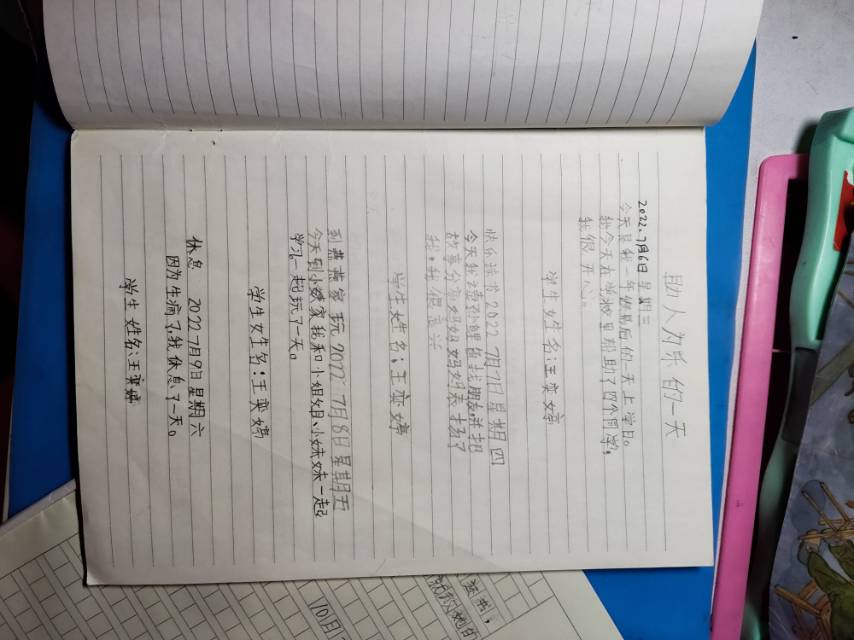 助人为乐的一天
2022、7月6日 星期三
今天是我一年级最后的一天上学日。
我今天在学校里帮助了四个同学。
我很开心。
学生姓名:王奕婷
快乐读书2022、7月7日星期四
今天我读了找朋友并把
故事分享妈妈妈妈好表扬了
我。我很高兴
学生姓名:王奕婷
到燕燕家玩 2022、7月8日星期五
今天到小姨家我和小姐姐、小妹妹一起
学习一起玩了一天。
学生姓名:王奕婷
休息 2022 7月9日星期六
因为生病了,我休息了一天。
学生姓名:王奕婷
10月